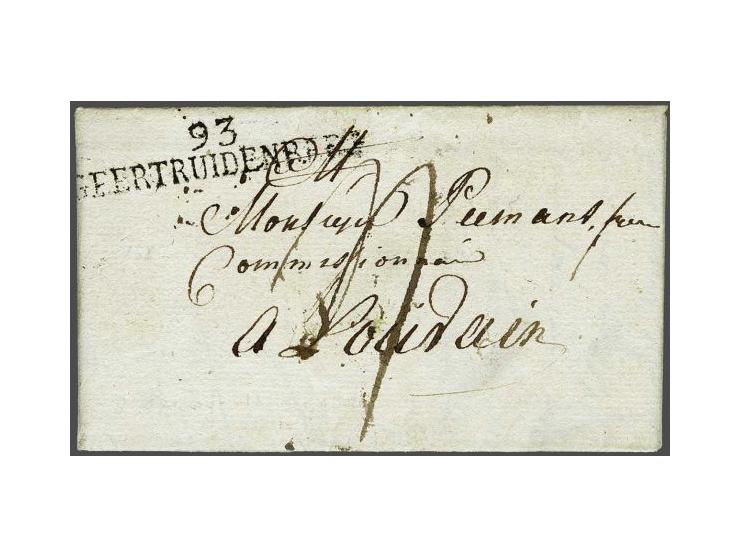 93
GEERTRUIDENBERG
M
Monsieur Piemans, frere
Commissionnair
a Louvain